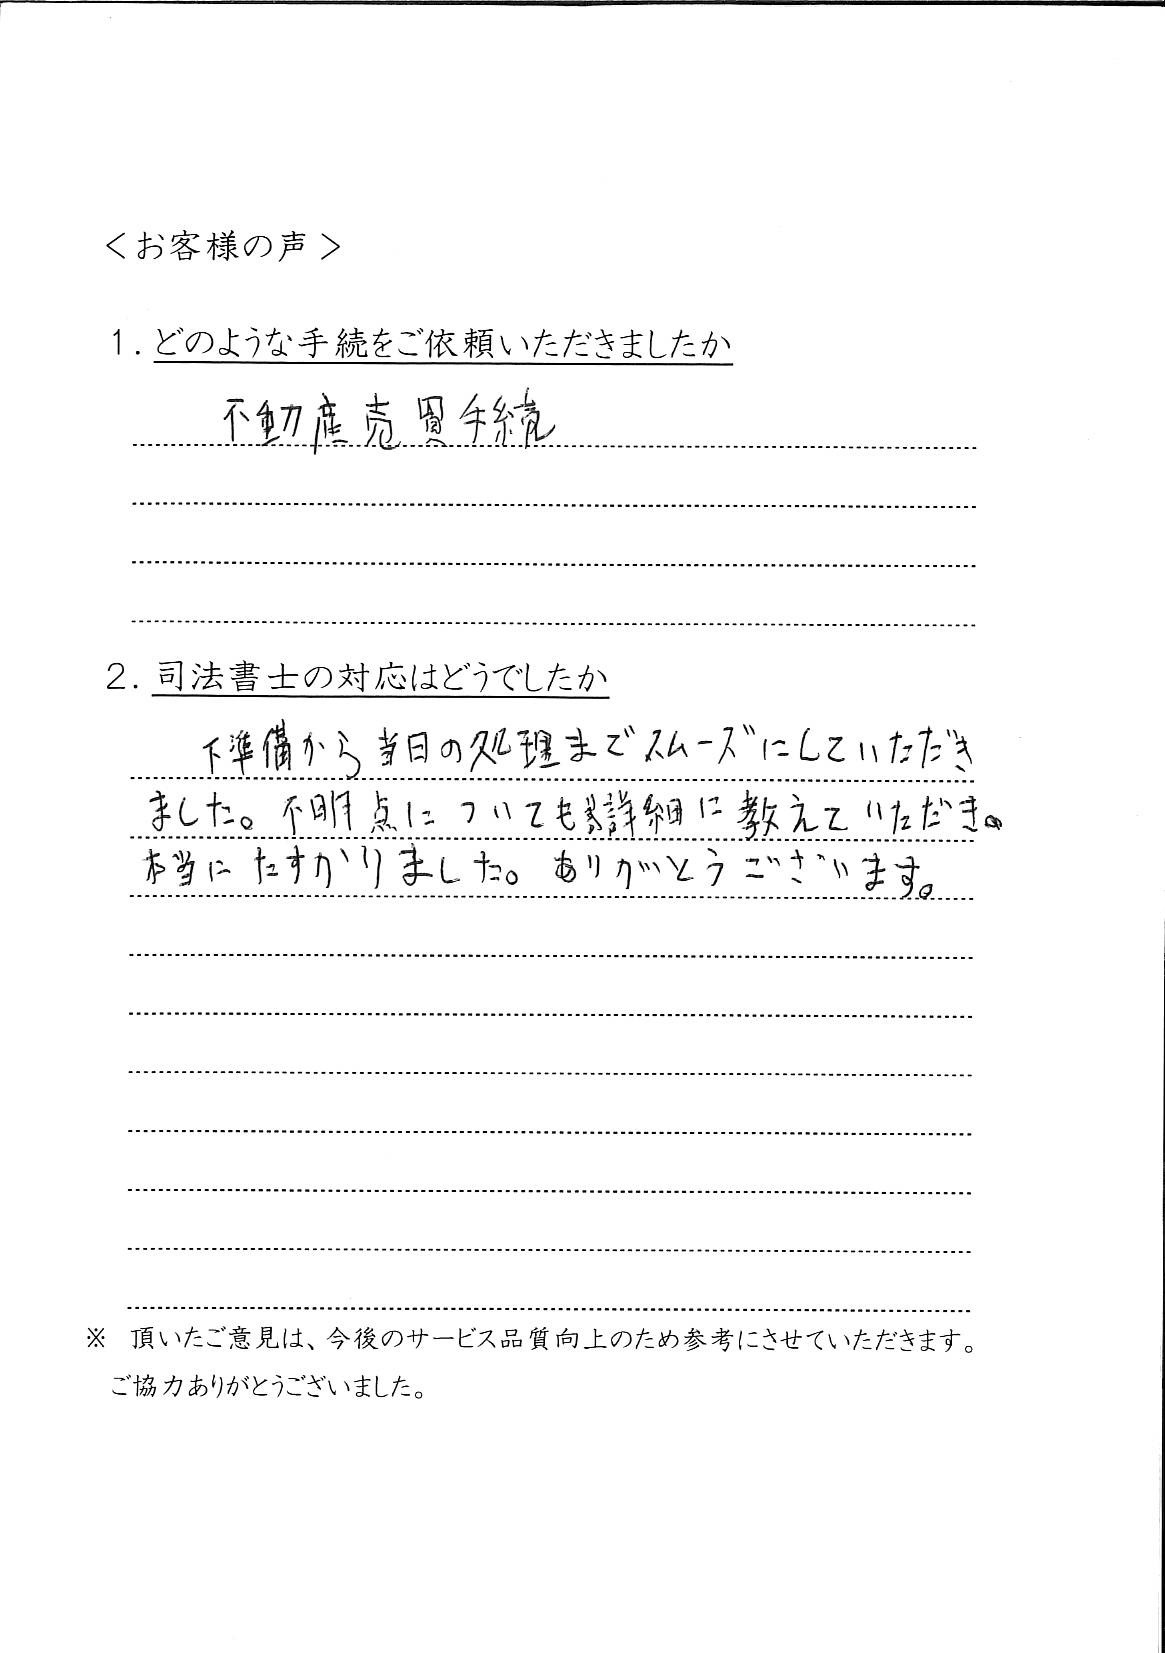 ＜お客様の声＞
１. どのような手続をご依頼いただきましたか
不動産売買手続
２. 司法書士の対応はどうでしたか
下準備から当日の処理までスムーズにしていただき
ました。不明点についても詳細に教えていただき。
本当にたすかりました。ありがとうございます。
※　頂いたご意見は、今後のサービス品質向上のため参考にさせていただきます。
ご協力ありがとうございました。